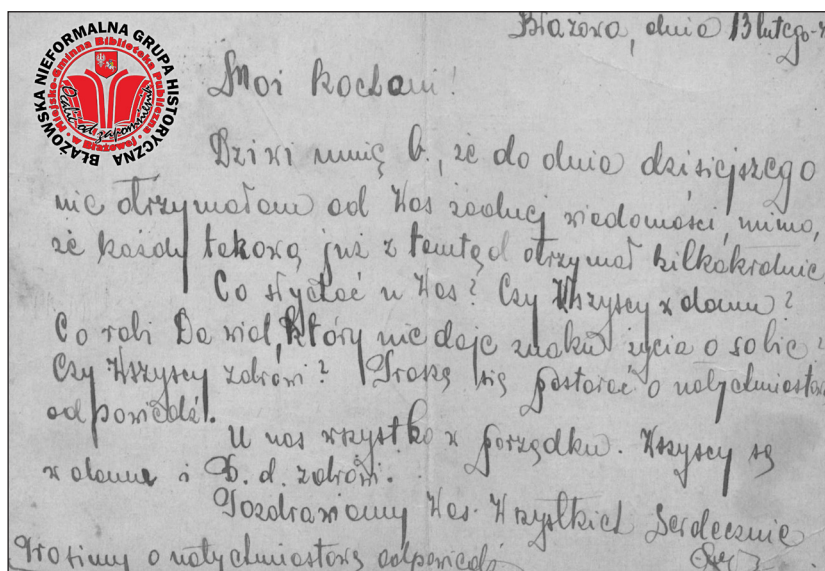 BŁAŻOWSKA NIEFORMALNA GRUPA HISTORYCZNA
Miejsko-Gminna Biblioteka Publiczna
Ocalić od zapomnienia
Błażowa, dnia 13 lutego
Moi kochani!
Dziwi mnię b., że do dnia dzisiejszego
nie otrzymałam od Was żadnej wiadomości, mimo,
że każdy takową już z tamtąd otrzymał kilkakrotnie.
Co słychać u Was? Czy Wszyscy w domu?
Co robi Dawid, który nie daje znaku życia o sobie?
Czy Wszyscy zdrowi? Proszę się postarać o natychmiastową
odpowiedź.
U nas wszystko w porządku. Wszyscy są
w domu i B. d. zdrowi.
Pozdrawiamy Was Wszystkich serdecznie
Prosimy o natychmiastową odpowiedź